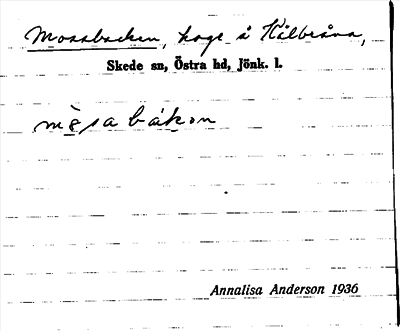 Mossbacken, hage å Kålbråna,
Skede sn, Östra hd, Jönk. l.
måsabákan
Annalisa Anderson 1936